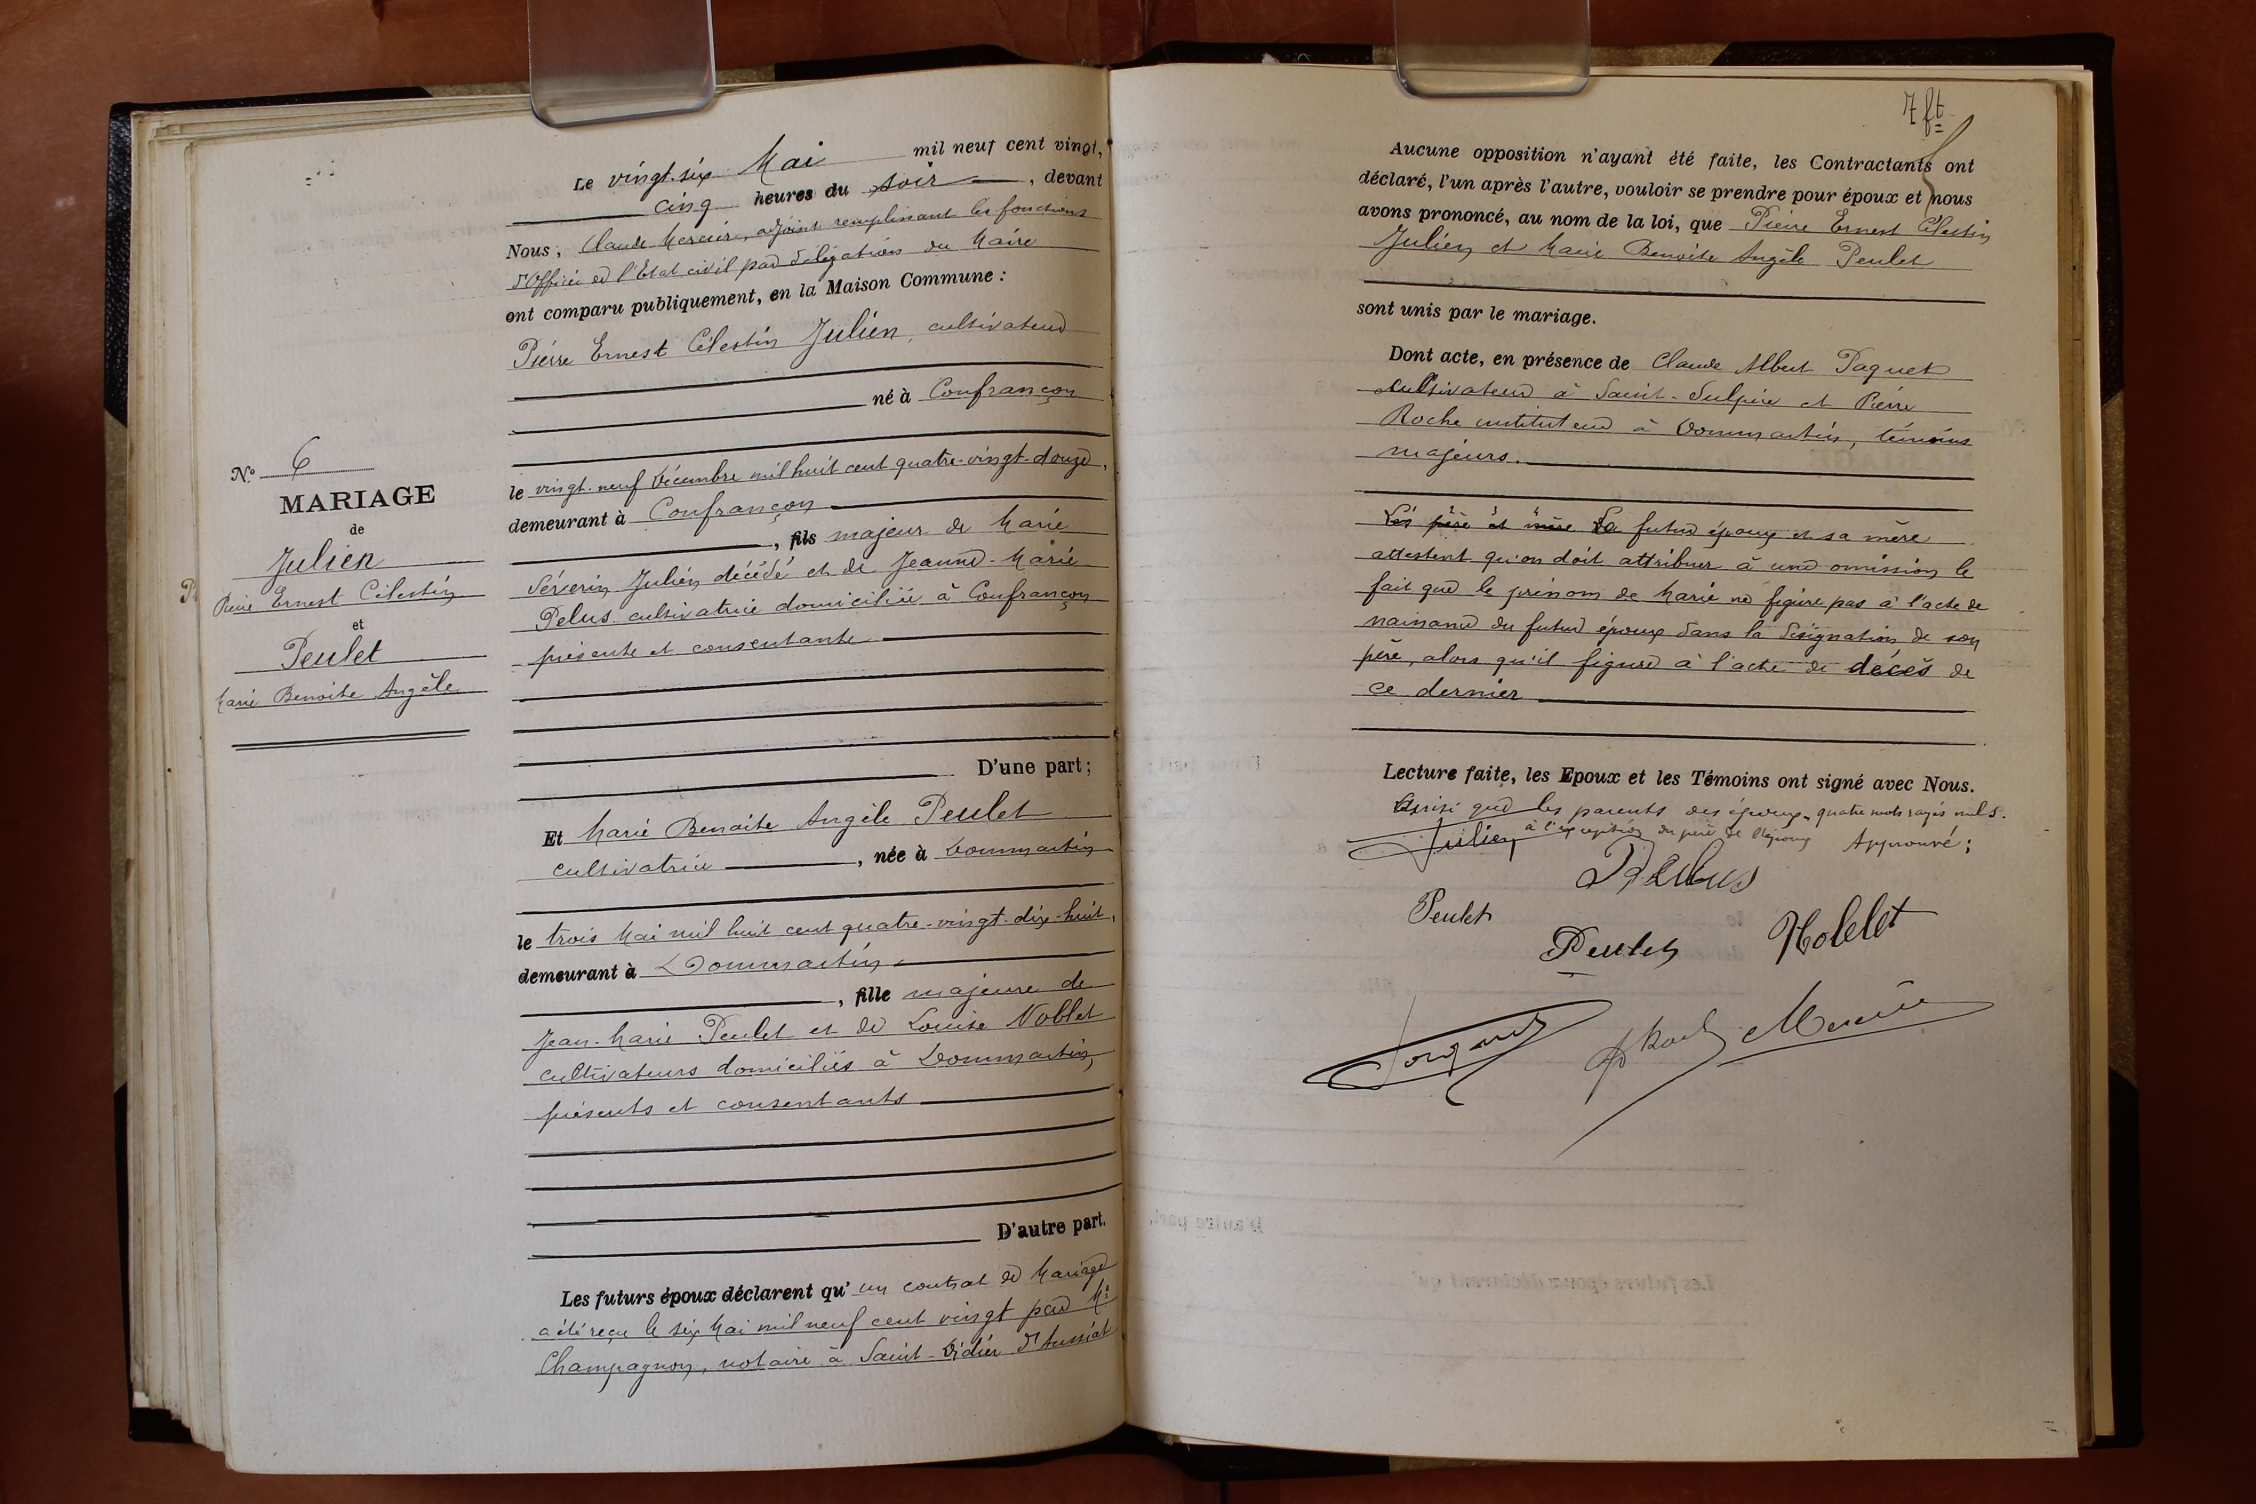 N° 6
MARIAGE
de
Julien
Pierre Ernest Célestin
et
Peulet
Marie Benoite Angèle
Le vingt-six Mai mil neuf cent vingt,
cinq heures du soir, devant
Nous, Claude Mercier, adjoint remplissant les fonctions
d'Officier de l'Etat civil par délégation du Maire
ont comparu publiquement, en la Maison Commune :
Pierre Ernest Célestin Julien, cultivateur
né à Confrançon
le vingt-neuf Décembre mil huit cent quatre-vingt-douze,
demeurant à Confrançon
, fils majeur de Marie
Séverin Julien décédé et de Jeanne-Marie
Pelus cultivatrice domiciliée à Confrançon
présente et consentante
D'une part ;
Et Marie Benoite Angèle Peulet
cultivatrice, née à Dommartin
le trois Mai mil huit cent quatre-vingt-dix-huit,
demeurant à Dommartin
, fille majeure de
Jean-Marie Peulet et de Louise Noblet
cultivateurs domiciliés à Dommartin,
présents et consentants
D'autre part.
Les futurs époux déclarent qu'un contrat de Mariage
a été reçu le six Mai mil neuf cent vingt par Me
Champagnon, notaire à Saint-Didier d'Aussiat
7 ft
Aucune opposition n'ayant été faite, les Contractants ont
déclaré, l'un après l'autre, vouloir se prendre pour époux et nous
avons prononcé, au nom de la loi, que Pierre Ernest Célestin
Julien et Marie Benoite Angèle Peulet
sont unis par le mariage.
Dont acte, en présence de Claude Albert Paquet
cultivateur à Saint-Sulpice et Pierre
Roche instituteur à Dommartin, témoins
majeurs.
Les père et mère Le futur époux et sa mère
attestent qu'on doit attribuer à une omission le
fait que le prénom de Marie ne figure pas à l'acte de
naissance du futur époux dans la désignation de son
père, alors qu'il figure à l'acte de décès de
ce dernier
Lecture faite, les Epoux et les Témoins ont signé avec Nous.
Ainsi que les parents des époux, quatre mots rayés nuls.
à l'exception du père de l'époux Approuvé :
Julien
Pelus
Peulet
Peulet
Noblet
Paquet
Roche
Mercier